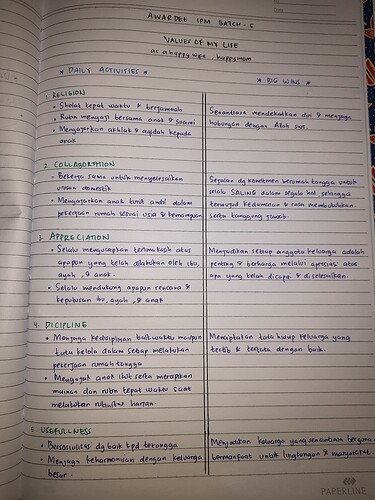 Date
AWARDEE IPM BATCH-5
VALUES OF MY LIFE
as a happy wife, happy mom
* DAILY ACTIVITIES *
* BIG WINS *
1. RELIGION
• Sholat tepat waktu & berjamaah
• Rutin mengaji bersama anak & suami
• Mengajarkan akhlak & aqidah kepada
anak
Senantiasa mendekatkan diri & menjaga
hubungan dengan Allah swt.
2. COLLABORATION
• Bekerja sama untuk menyelesaikan
urusan domestik
• Mengajarkan anak turut andil dalam
pekerjaan rumah sesuai usia & kemampuan
Sejalan dg komitmen berumah tangga untuk
selalu SALING dalam segala hal sehingga
terwujud kedamaian & rasa membutuhkan
serta tanggung jawab.
3. APPRECIATION
• Selalu mengucapkan terimakasih atas
apapun yang telah dilakukan oleh ibu,
ayah, & anak.
• Selalu mendukung apapun rencana &
keputusan ibu, ayah, & anak
Menjadikan setiap anggota keluarga adalah
penting & berharga melalui apresiasi atas
apa yang telah dicapai & diselesaikan.
4. DICIPLINE
• Menjaga kedisiplinan baik waktu maupun
tata kelola dalam setiap melakukan
pekerjaan rumah tangga
• Mengajak anak ikut serta merapikan
mainan dan rutin tepat waktu saat
melakukan rutinitas harian.
Menciptakan tata hidup keluarga yang
tertib & tertata dengan baik.
5. USEFULLNESS
• Bersosialisasi dg baik kpd tetangga
• Menjaga keharmonisan dengan keluarga
besar.
Menjadikan keluarga yang senantiasa berguna &
bermanfaat untuk lingkungan & masyarakat
PAPERLINE